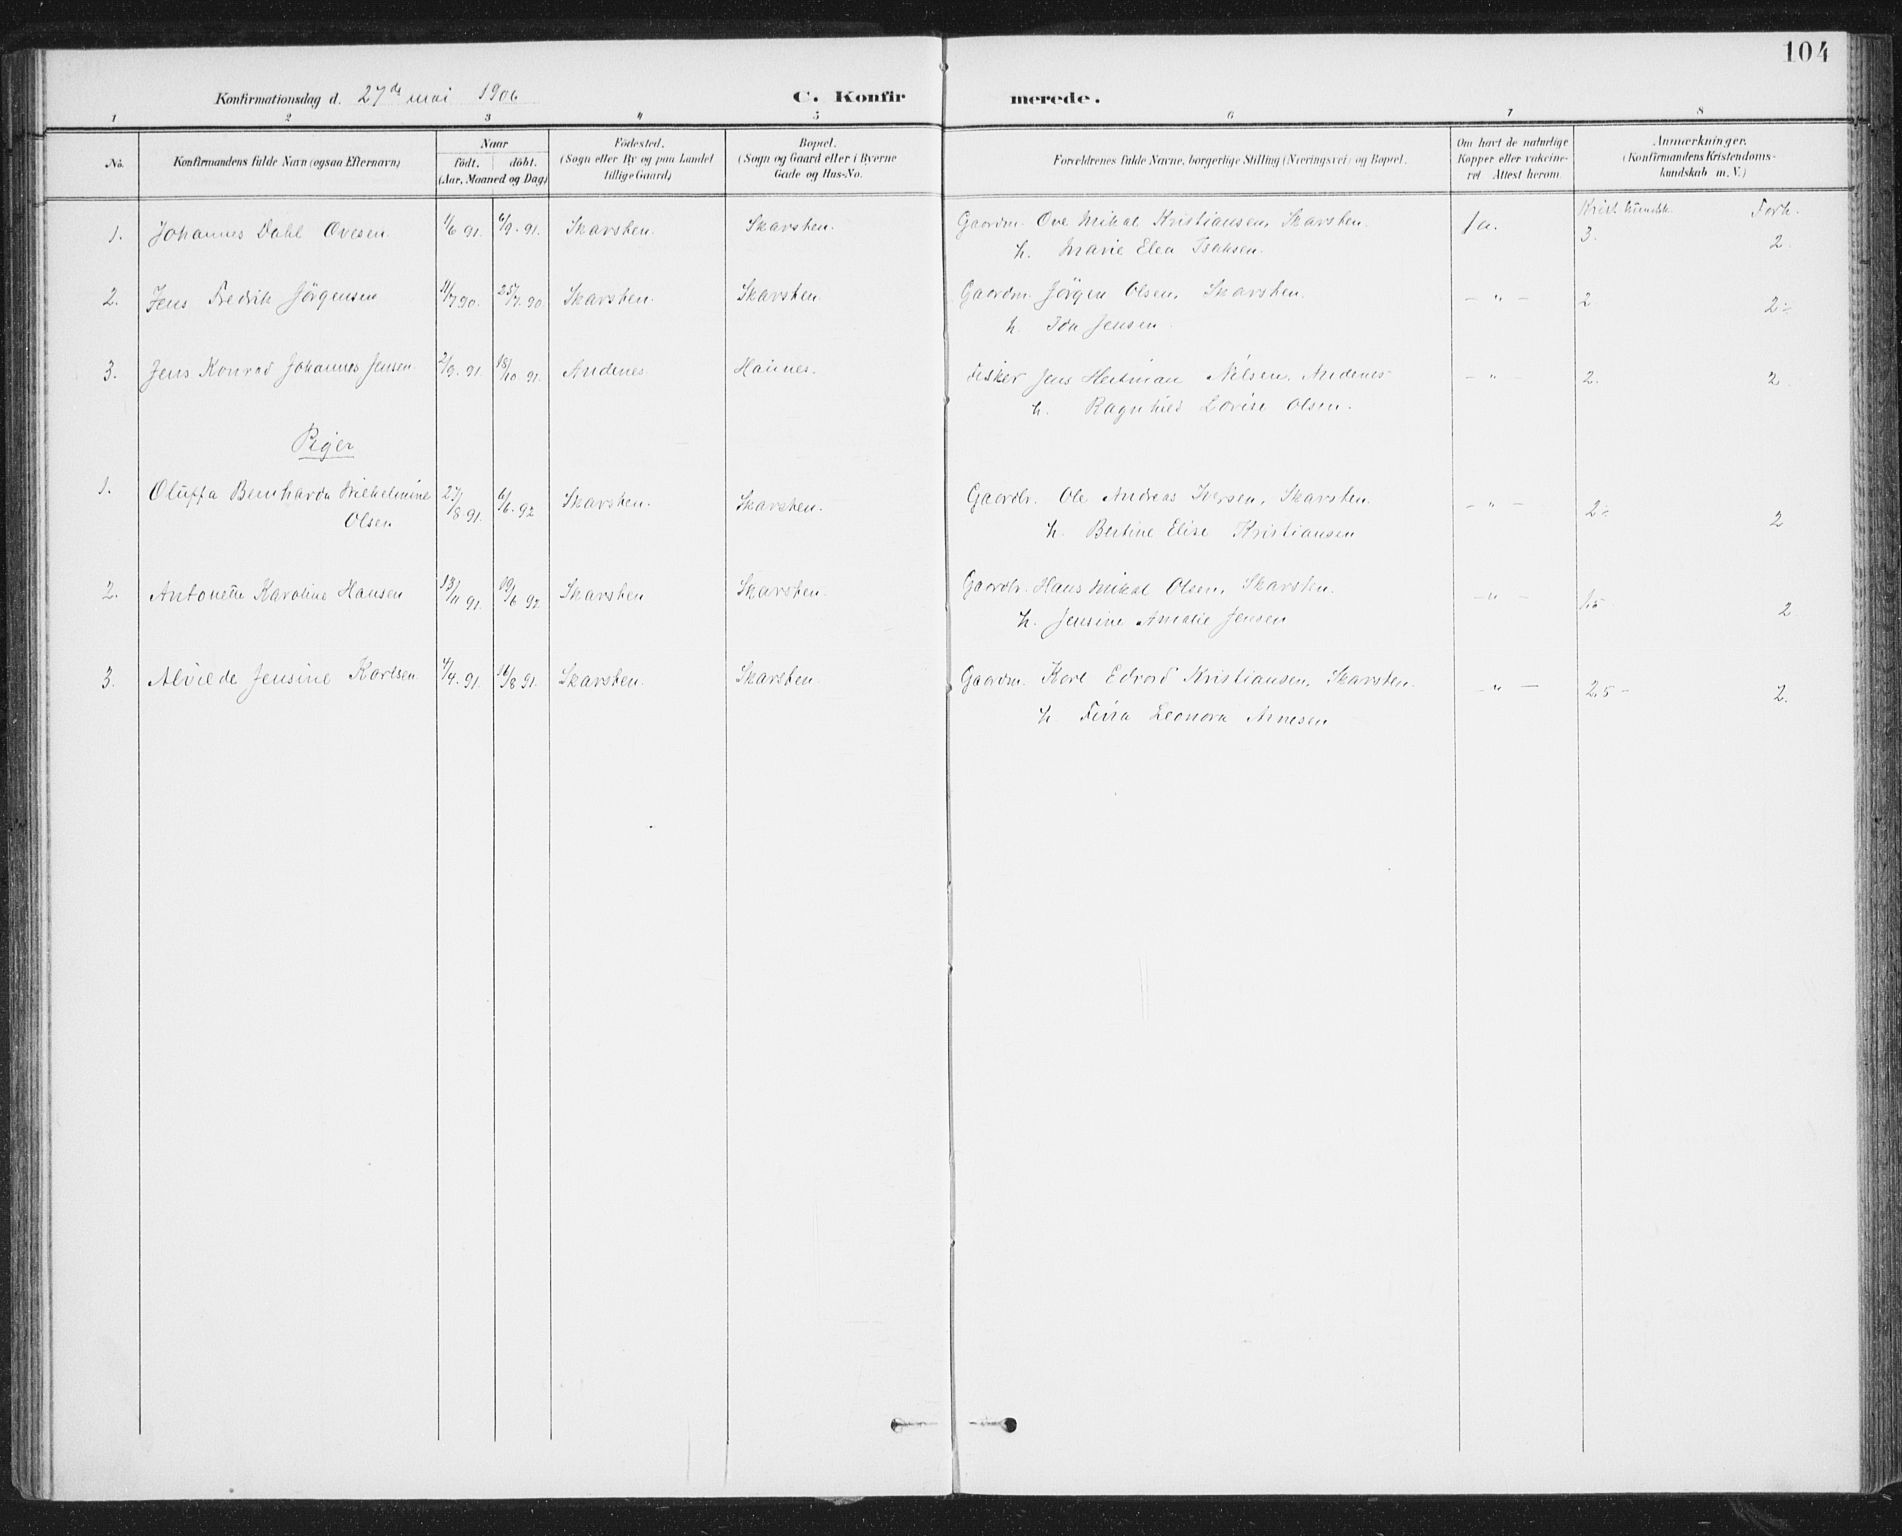 104
Konfirmationsdag d. 27de mai 1906 C. Konfirmerede.
1 2 3 4 5 6 7 8
No. Konfirmandens fulde Navn (ogsaa Efternavn) Naar født. døbt. (Aar, Maaned og Dag) Fødested. (Sogn eller By og paa Landet tillige Gaard) Bopæl. (Sogn og Gaard eller i Byerne Gade og Hus-No. Forældrenes fulde Navne, borgerlige Stilling (Næringsvei) og Bopæl. Om havt de naturlige Kopper eller vakcineret Attest herom. Anmærkninger. (Konfirmandens Kristendomskundskab m. V.)
Krist. kundsk. Forh.
1. Johannes Dahl Ovesen 1/6 91. 6/9. 91. Skarsten. Skarsten. Gaardm. Ove Mikal Kristiansen, Skarsten. Ja. 3. 2.
h. Marie Elea Isaksen.
2. Jens Fredrik Jørgensen 11/7 90. 25/7. 90. Skarsten. Skarsten. Gaardm. Jørgen Olsen, Skarsten. — " — 2 2 ÷
h. Ida Jensen.
3. Jens Konrad Johannes Jensen 2/9. 91. 18/10 91. Andenes Haines. Fisker Jens Heitman Nilsen, Andenes — " — 2. 2.
h. Ragnhild Lovise Olsen.
Piger
1. Oluffa Bernharda Wilhelmine 27/8. 91. 6/6. 92 Skarsten. Skarsten. Gaardbr. Ole Andreas Iversen, Skarsten. — " — 2 ÷ 2
Olsen h. Bertine Elise Kristiansen
2. Antonette Karoline Hansen 13/11 91. 19/6 92. Skarsten Skarsten. Gaardbr. Hans Mikal Olsen, Skarsten. — " — 1.5 2
h. Jensine Amalie Jensen
3. Alvilde Jensine Karlsen 4/4. 91. 16/8 91. Skarsten. Skarsten. Gaardm. Karl Edvard Kristiansen, Skarsten. — " — 2.5 — 2.
h Leonora Arnesen